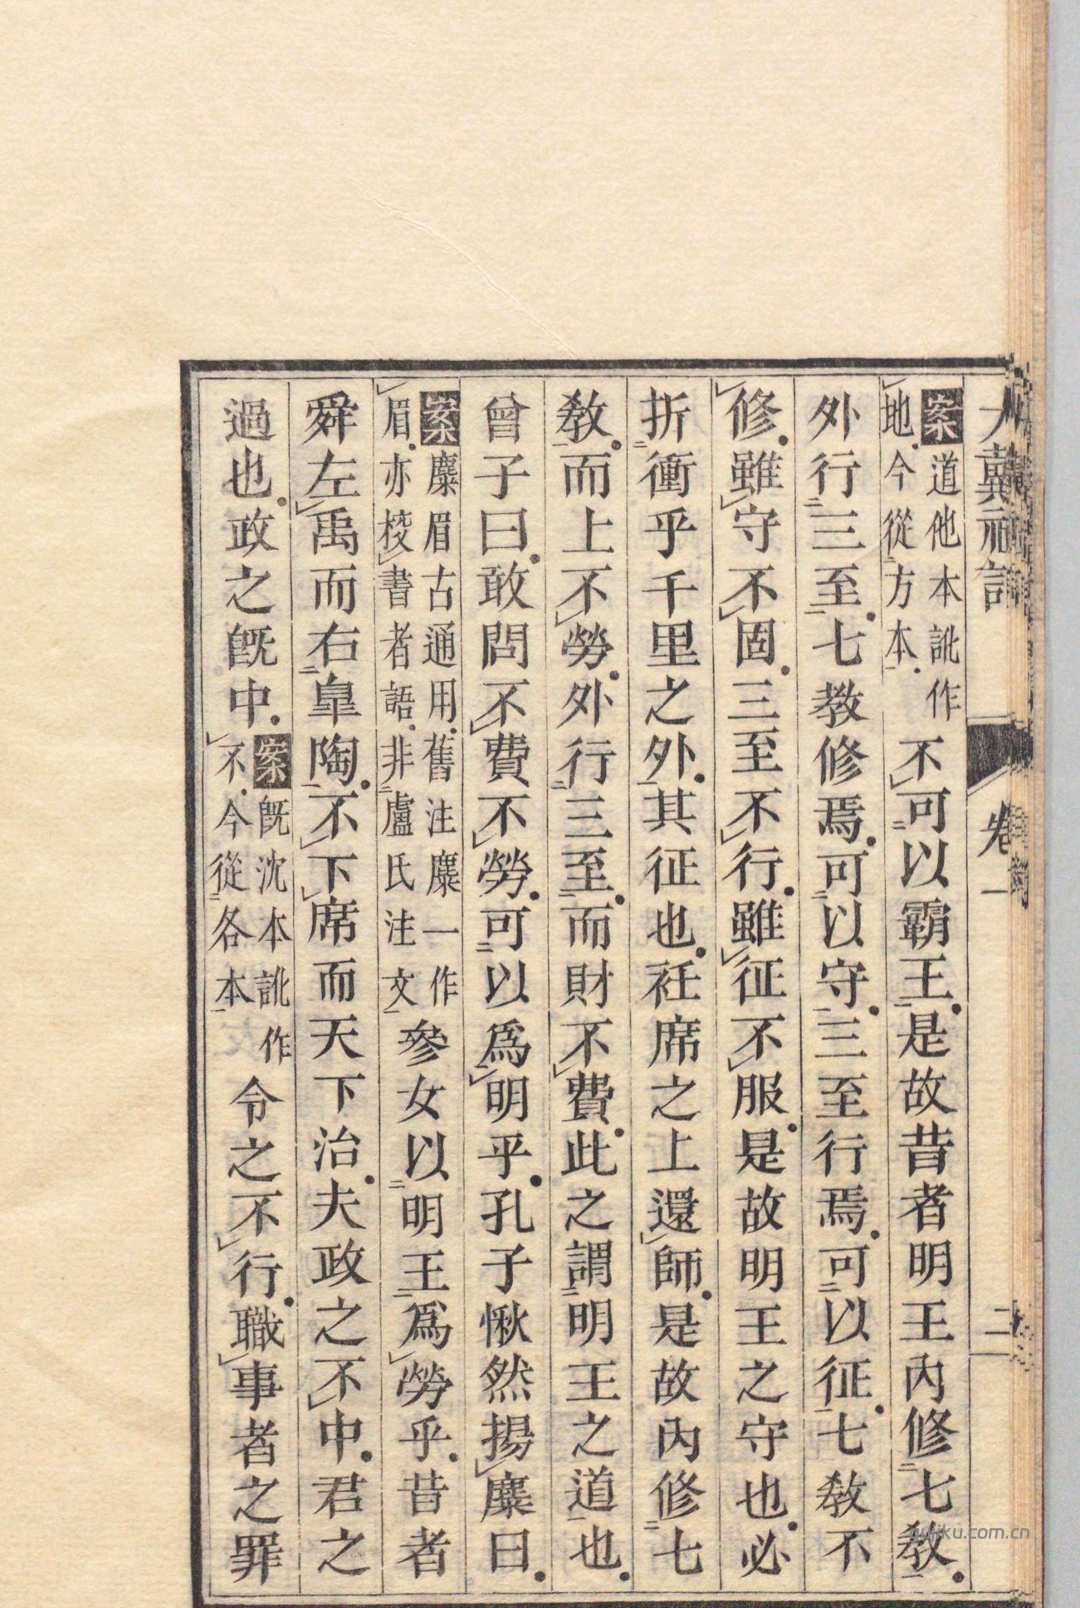 大戴禮記
卷一
二
案道他本訛作地今從方本不可以霸王是故昔者明王內修七教
外行三至七教修焉可以守三至行焉可以征七教不
修雖守不固三至不行雖征不服是故明王之守也必
折衝乎千里之外其征也衽席之上還師是故內修七
教而上不勞外行三至而財不費此之謂明王之道也
曾子曰敢問不費不勞可以爲明乎孔子愀然揚麋曰
案麋眉古通用舊注麋一作眉亦校書者語非盧氏注文參女以明王爲勞乎昔者
舜左禹而右皐陶不下席而天下治夫政之不中君之
過也政之旣中案旣沈本訛作不今從各本令之不行職事者之罪
gujiku.com.cn